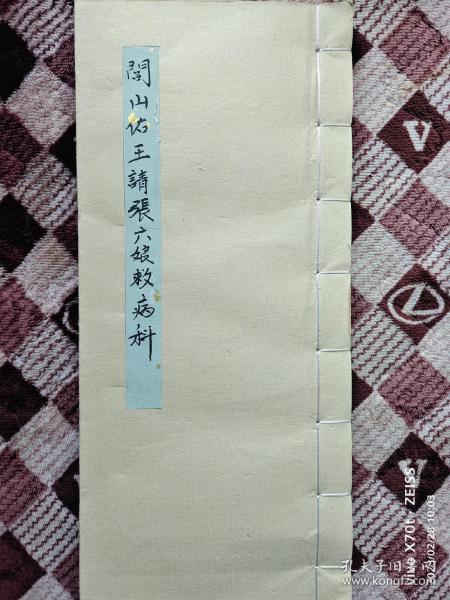 閭山佑王請張六娘救病科
vivo X70t · ZEISS
2021/02/28 10:03
孔夫子旧书网
www.kongfz.com